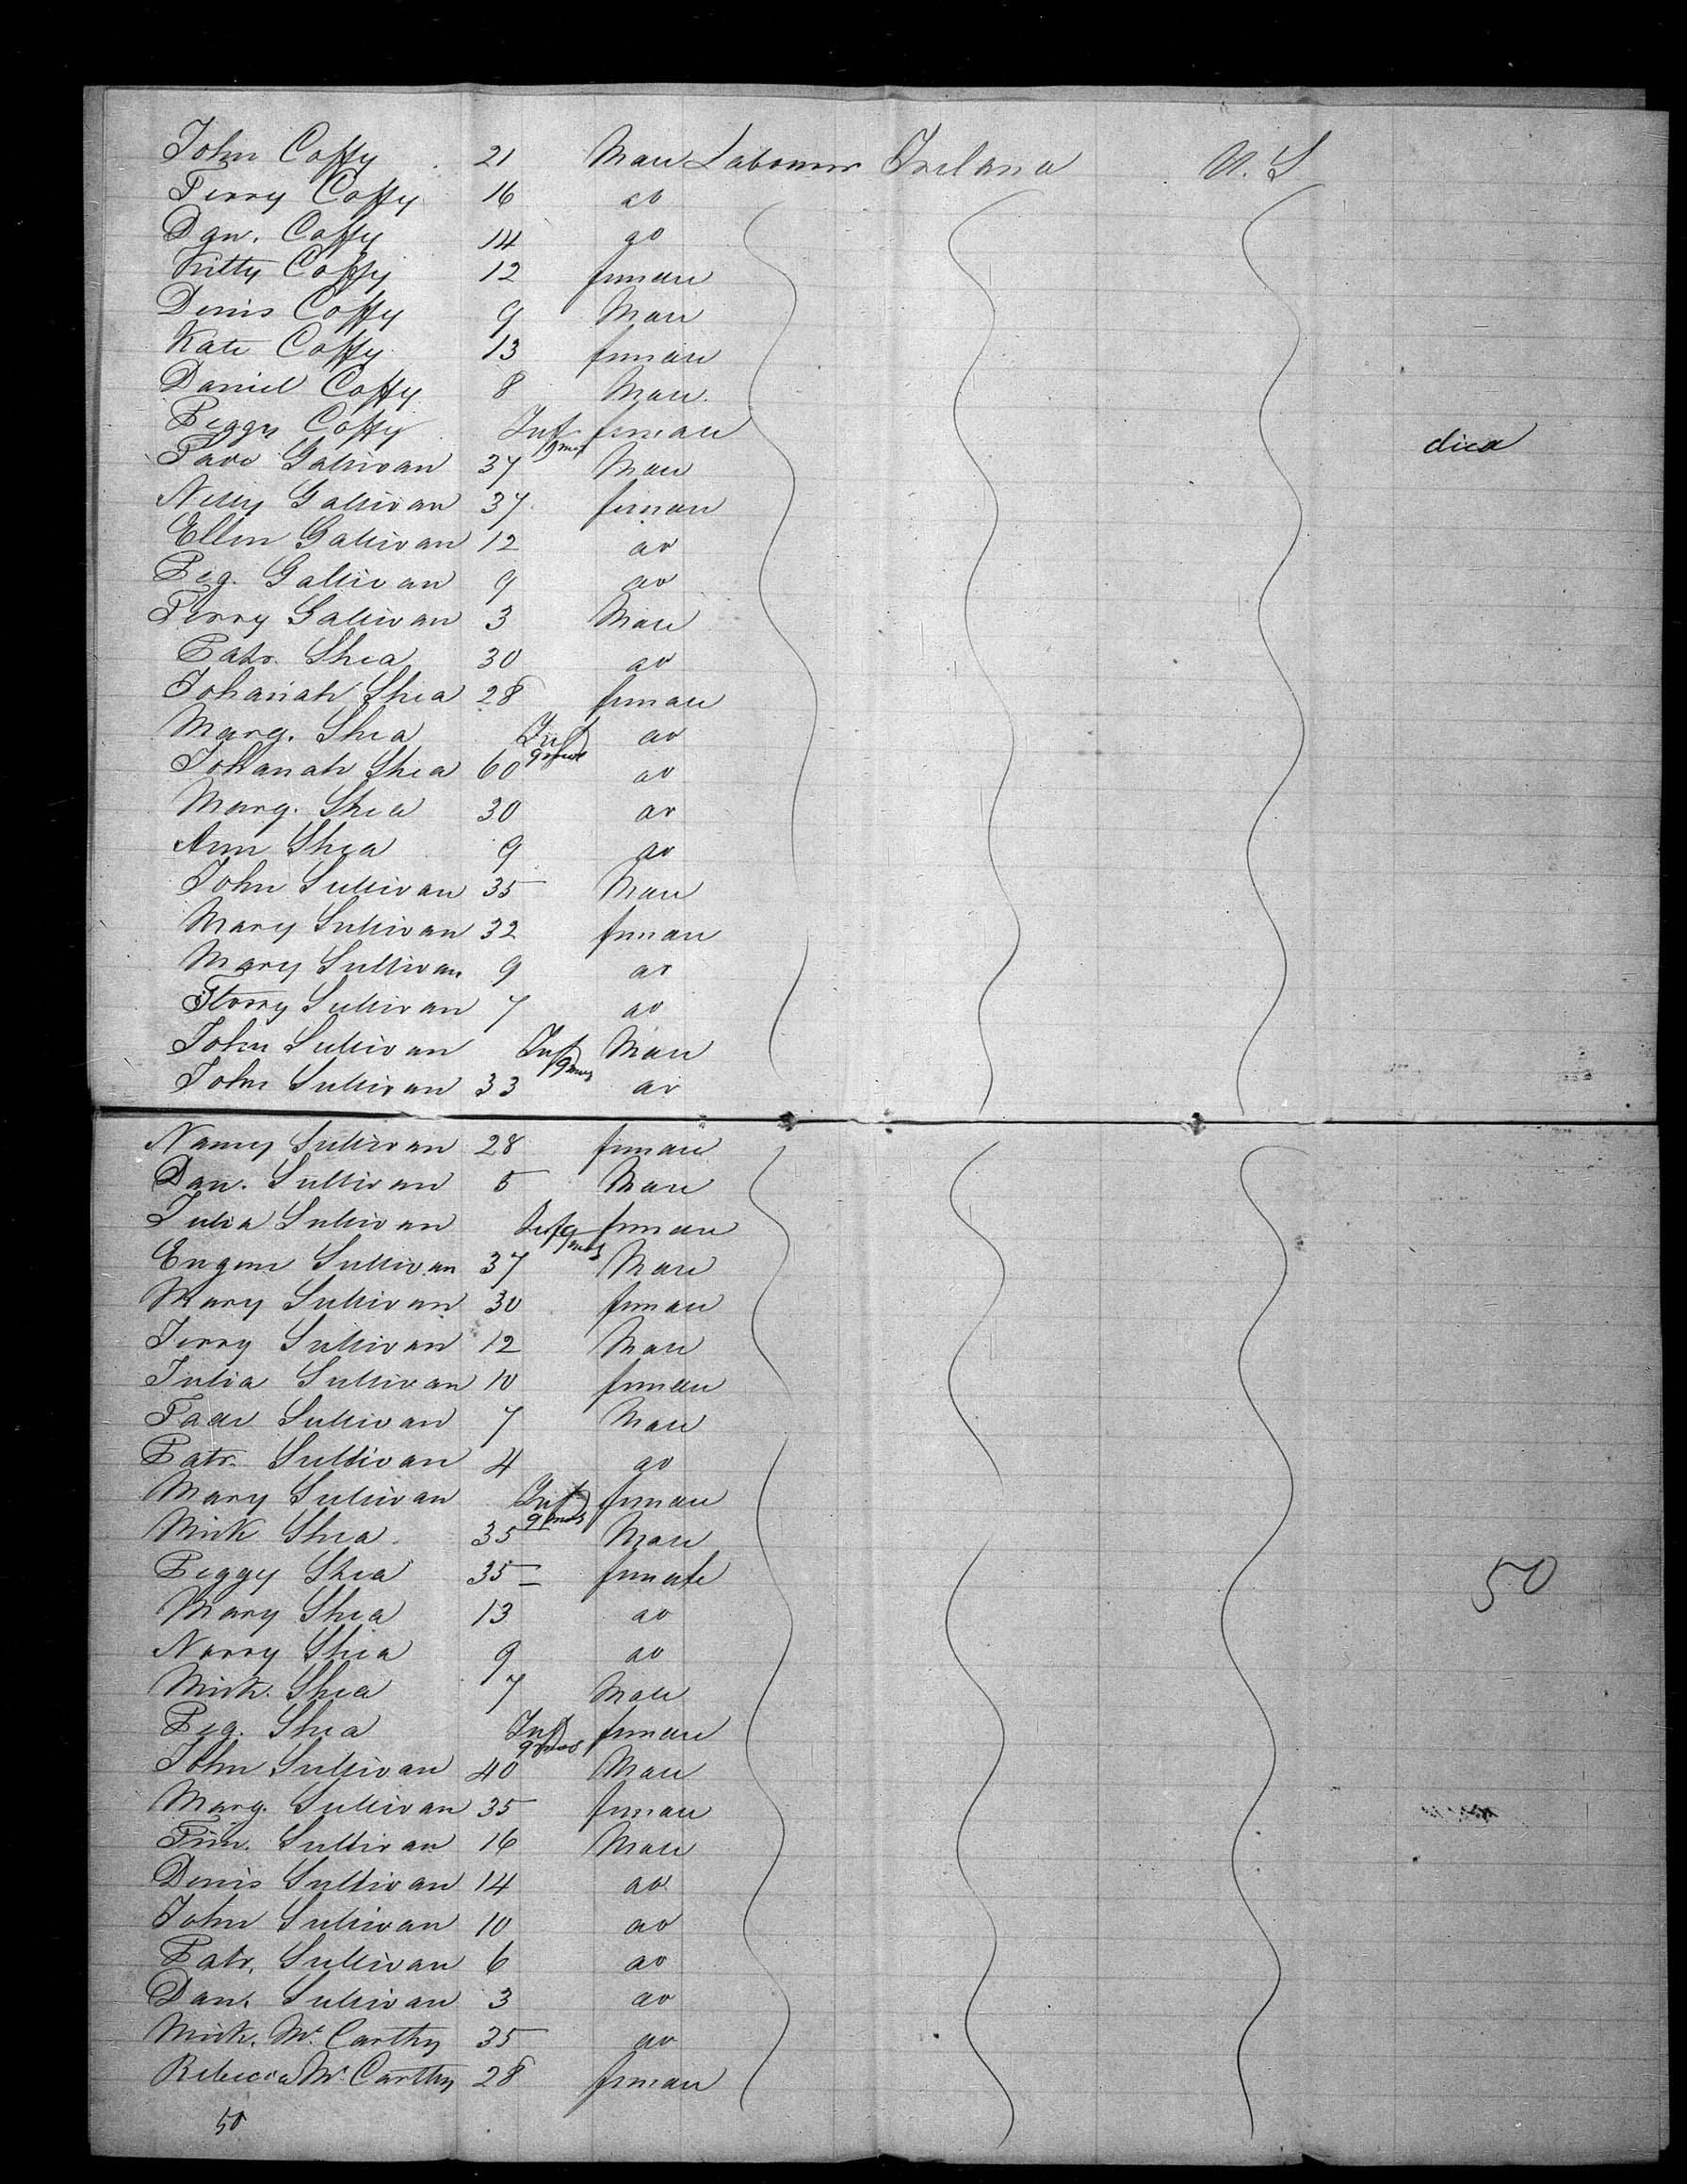 John Coffy 21 Male Labourer Ireland U.S
Terry Coffy 16 do
Dan. Coffy 14 do
Kitty Coffy 12 female
Denis Coffy 9 Male
Kate Coffy 13 female
Daniel Coffy 8 Male
Peggy Coffy Inft 9 mos female died
Gallivan 37 Male
Nelly Gallivan 37 female
Ellen Gallivan 12 do
Peg. Gallivan 9 do
Terry Gallivan 3 Male
Patr. Shea 30 do
Johanah Shea 28 female
Marg. Shea Inft 9 mos do
Johanah Shea 60 do
Marg. Shea 30 do
Ann Shea 9 do
John Sullivan 35 Male
Mary Sullivan 32 female
Mary Sullivan 9 do
Florry Sullivan 7 do
John Sullivan Inft 9 mos Male
John Sullivan 33 do
Nancy Sullivan 28 female
Dan. Sullivan 5 Male
Julia Sullivan Inft 9 mos female
Eugene Sullivan 37 Male
Mary Sullivan 30 female
Jerry Sullivan 12 Male
Julia Sullivan 10 female
Sullivan 7 Male
Patr. Sullivan 4 do
Mary Sullivan Inft 9 mos female
Mick Shea 35 Male
Peggy Shea 35 female 50
Mary Shea 13 do
Norry Shea 9 do
Mick. Shea 7 Male
Peg. Shea Inft 9 mos female
John Sullivan 40 Male
Marg. Sullivan 35 female
Tim. Sullivan 16 Male
Denis Sullivan 14 do
John Sullivan 10 do
Patr. Sullivan 6 do
Dan. Sullivan 3 do
Mick. Mc Carthy 35 do
Rebecca Mc Carthy 28 female
50